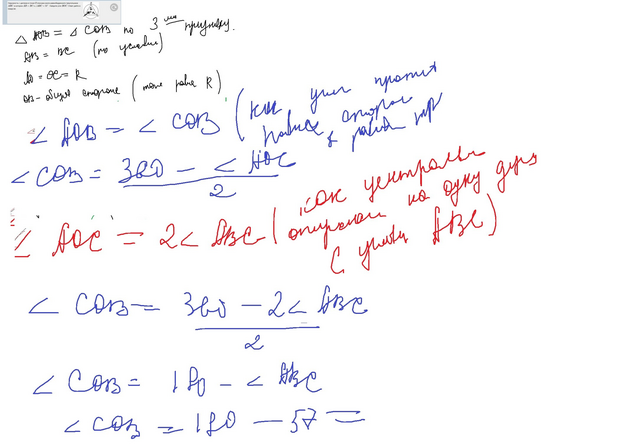 △ AOB = △ COB по 3 му признаку.
AB = BC (по условию)
AO = OC = R
OB - общая сторона (тоже равна R)
∠ AOB = ∠ COB (как углы против
равных сторон
в равных тр
∠ COB = 360 - ∠ AOC
2
∠ AOC = 2∠ ABC (как центральный
опирающ на одну дугу
с углом ABC)
∠ COB = 360 - 2∠ ABC
2
∠ COB = 180 - ∠ ABC
∠ COB = 180 - 57 =